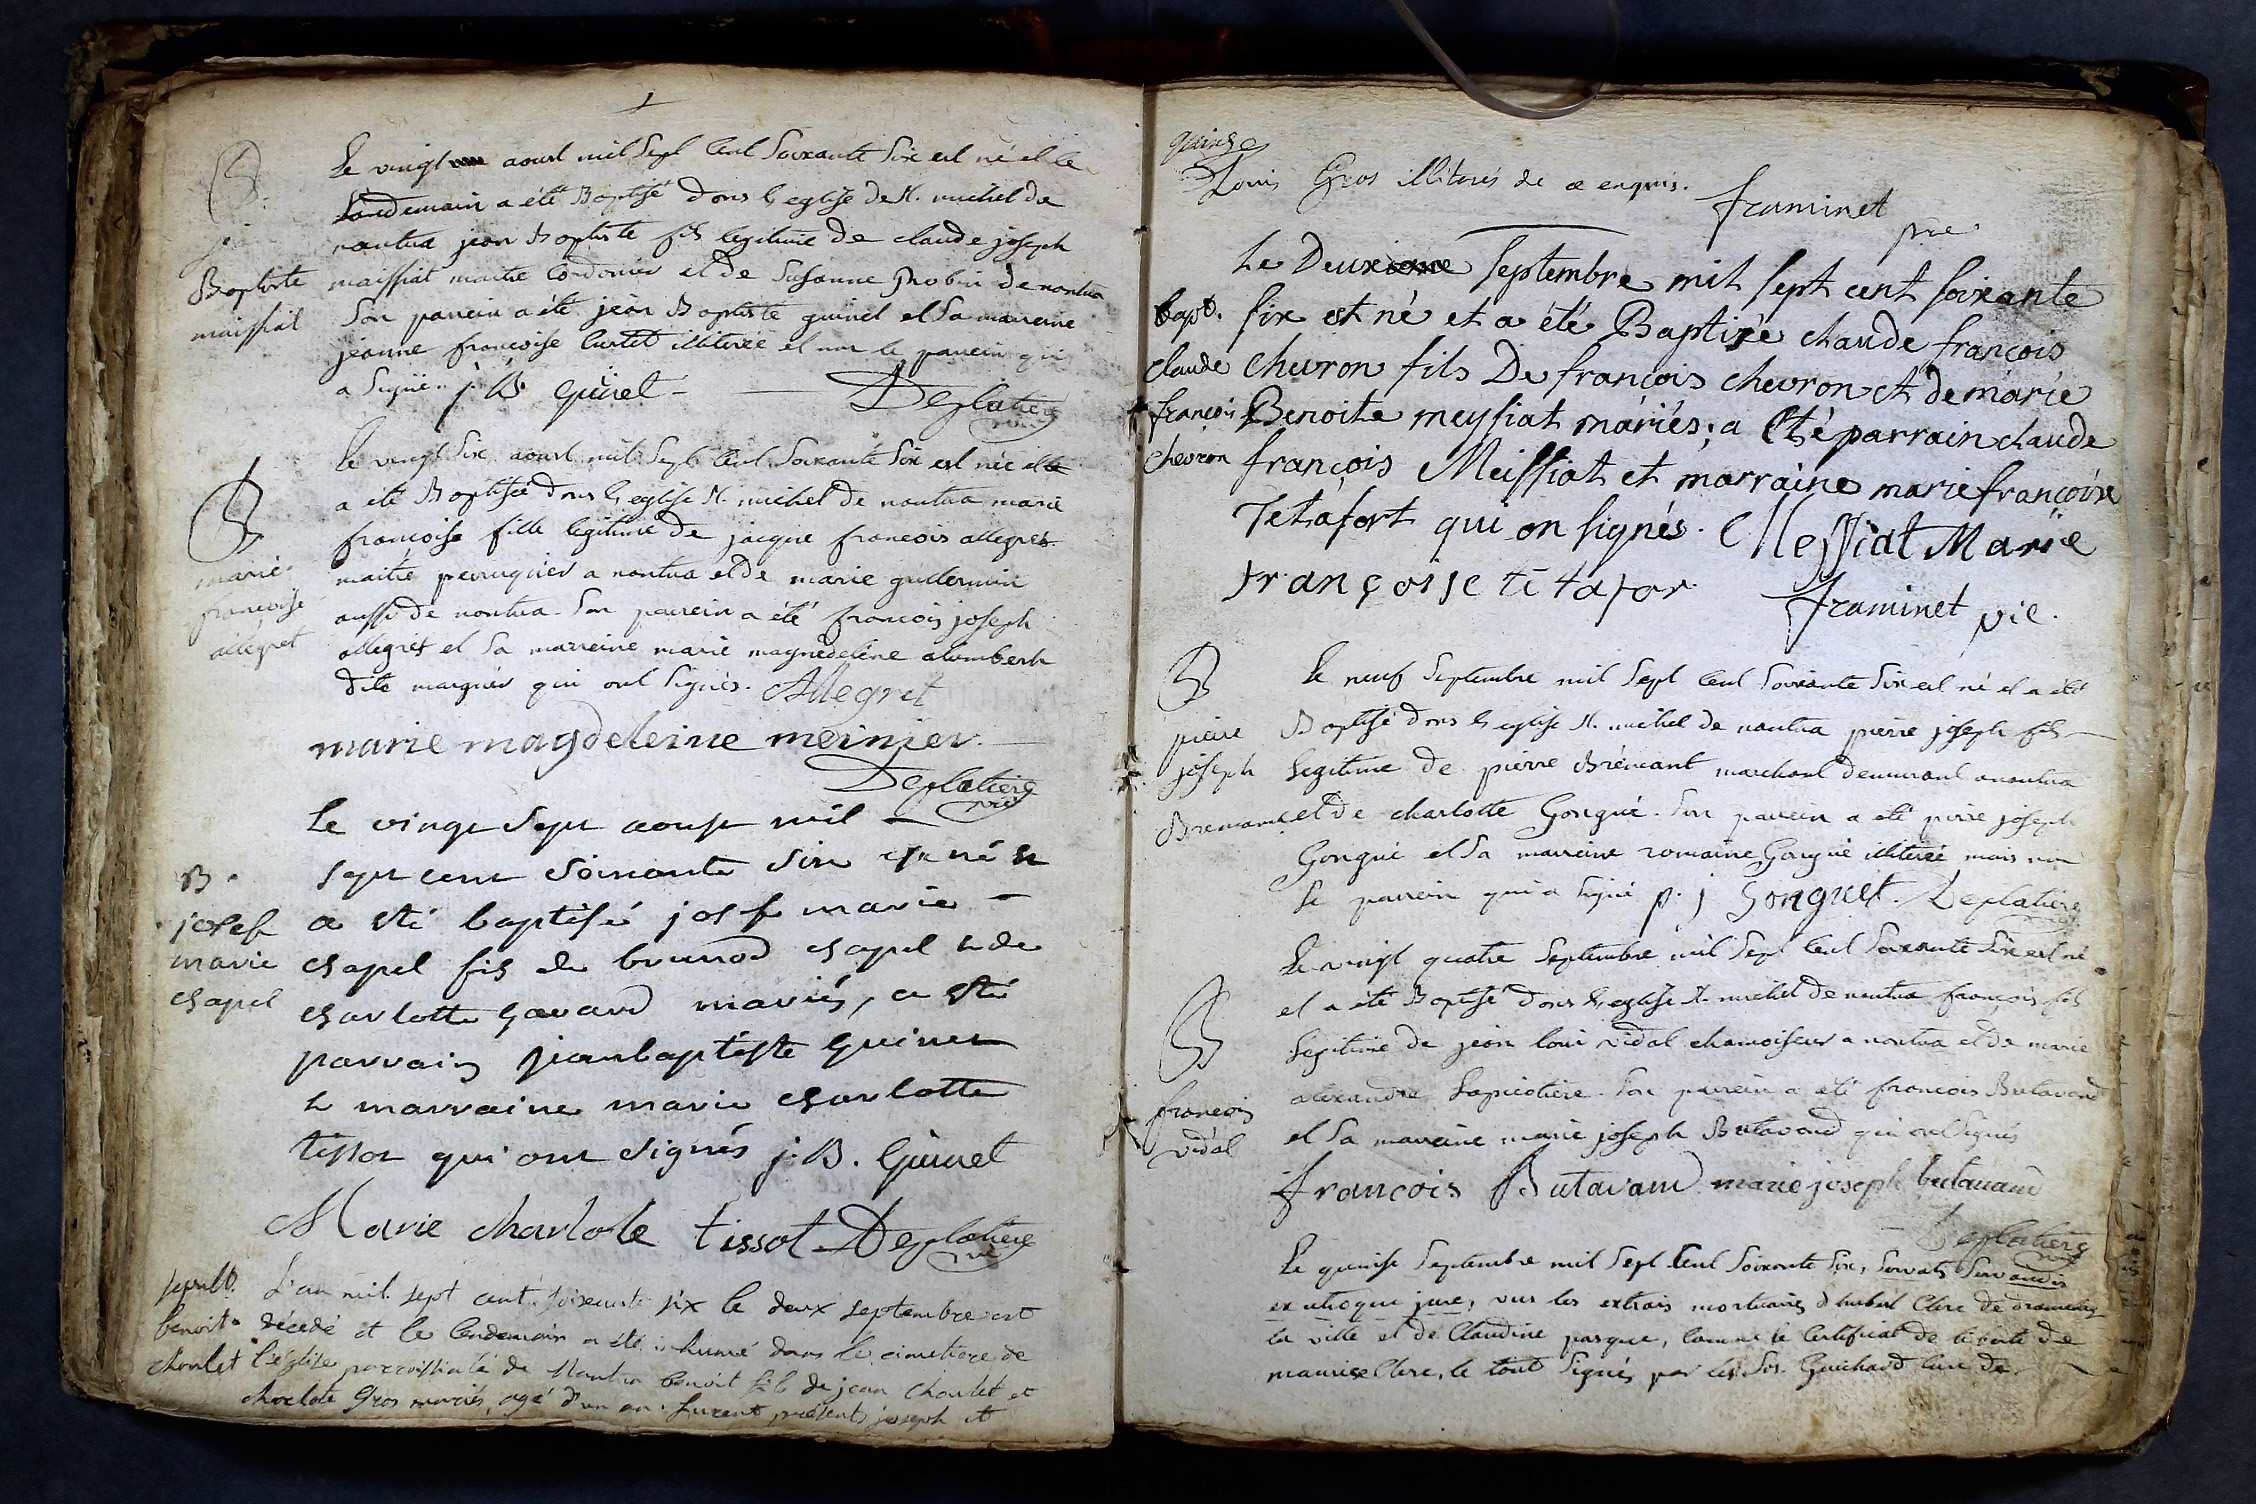 Le vingt aoust mil Sept Cent Soixante Six est né et le
B.
Landemain a été Baptisé dans l'eglise de St. michel de
nantua jean Baptiste fils legitime de claude joseph
jean
Baptiste
maissiat
maissiat maitre Cordonier et de Susanne Probin de nantua
Son parrein a été jean Baptiste guinet et Sa marreine
jeanne francoise Curtet illiterée et non le parrein qui
a Signé. j. B. Guinet
Deplatiere
vic
Le vingt Six aoust mil Sept Cent Soixante Six est née et
a été Baptisée dans l'eglise St. michel de nantua marie
B
marie
francoise
allegret
francoise fille legitime de jacque francois allegret
maitre perruquier a nantua et de marie guillermin
aussi de nantua. Son parrein a été francois joseph
allegret et Sa marreine marie magnedeleine alombert
dite margnier qui ont Signés. Allegret
marie magdeleine meinier
Deplatiere
vic
Le vingt Sept aoust mil
Sept cent Soixante Six est né et
B.
josef
marie
chapel
a eté baptisé josef marie
chapel fils de brunod chapel et de
charlotte Gavand mariés, a eté
parrain jeanbaptiste Guinet
et marraine marie charlotte
tissot qui ont Signés j. B. Guinet
Marie charlote tissot Deplatiere
vic
sepult.
benoit
choulet
L'an mil sept cent soixante six le deux septembre est
décedé et le lendemain a été inhumé dans le cimetiere de
l'église parroissiale de Nantua benoit fils de jean choulet et
charlote Gros mariés, agé d'un an. furent présents joseph et
quinze
Louis Gros illiterés de ce enquis.
framinet
pre.
Le Deux Septembre mil sept cent soixante
bapt.
claude
françois
chevron
six est né et a été Baptizé claude françois
chevron fils De françois chevron et de marie
Benoite meyssiat mariés; a Eté parrain claude
françois Meissiat et marraine marie françoise
Tetafort qui on signés. Messiat Marie
françoise tetafor
framinet vic.
Le neuf Septembre mil Sept Cent Soixante Six est né et a été
B
pierre
joseph
Bremant
Baptisé dans l'eglise St. michel de nantua pierre joseph fils
legitime de pierre Brémant marchant demurant a nantua
et de charlotte Gongué. Son parrein a été pierre joseph
Gongué et Sa marreine romaine Gongué illiterée mais non
le parrein qui a Signé p. j Gonguet. Deplatiere
vic
Le vingt quatre Septembre mil Sept Cent Soixante Six est né
et a été Baptisé dans l'eglise St. michel de nantua françois fils
B
francois
vidal
legitime de jean loui vidal chamoiseur a nantua et de marie
alexandre Lapicotiere. Son parrein a été francois Butavand
et Sa marreine marie joseph Butavand qui ont Signés
francois Butavand marie joseph butavand
Deplatiere
vic
Le quinse Septembre mil Sept Cent Soixante Six, Servatis Servandis
ex utroque jure, vus les extrais mortuaires d'hubert Clerc de
la ville et de Claudine parque, Comme le Certificat de liberté de
maurise Clerc, le tout Signés par les Srs. Guichard Cure de